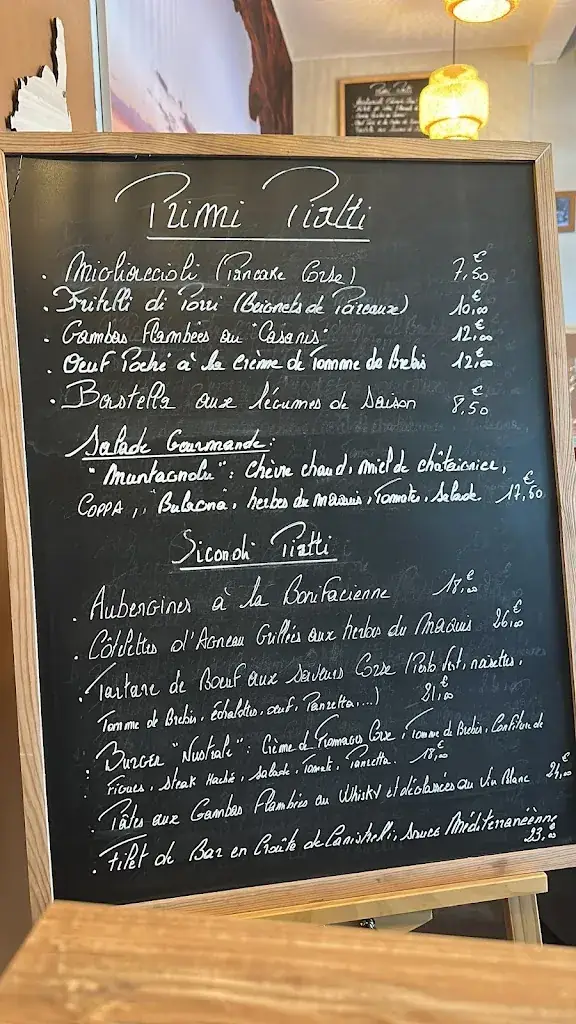 Primi Piatti
. Migliaccioli (Pancake Corse) 7,50€
. Fritelli di Porri (Beignets de Poireaux) 10,00€
. Gambas Flambées au "Casanis" 12,00€
. Oeuf Poché à la Crème de Tomme de Brebis 12,00€
. Bastella aux légumes de Saison 8,50€
Salade Gourmande:
"Muntagnolu": Chèvre chaud, miel de châtaignier,
COPPA, "Bulagna", herbes du maquis, Tomate, Salade 17,50€
Sicondi Piatti
. Aubergines à la Bonifacienne 18,00€
. Côtelettes d'Agneau Grillées aux herbes du Maquis 26,00€
. Tartare de Boeuf aux Saveurs Corse (Pesto Vert, noisettes,
Tomme de Brebis, échalottes, oeuf, Panzetta,...) 21,00€
. Burger "Nustrale": Crème de Fromages Corse, Tomme de Brebis, Confiture de
Figues, Steak Haché, Salade, Tomate, Panzetta. 18,00€
. Pâtes aux Gambas Flambées au Whisky et déglacées au Vin Blanc 24,00€
. Filet de Bar en Croûte de Canistrelli, Sauce Méditerranéenne
23,00€